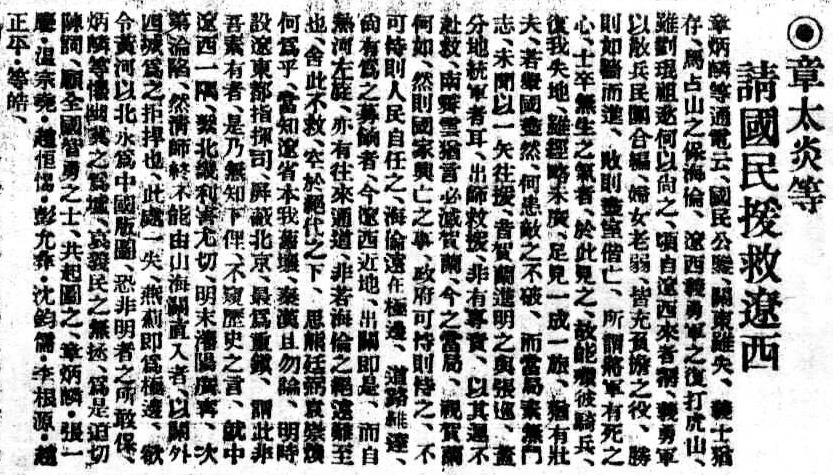 ◉章太炎等
請國民援救遼西
章炳麟等通電云、國民公鑒、關東雖失、義士猶
存、馬占山之保海倫、遼西義勇軍之復打虎山、
雖劉琨祖逖何以尚之、頃自遼西來者稱、義勇軍
以散兵民團合編、婦女老弱、皆充負擔之役、勝
則如牆而進、敗則盡室偕亡、所謂將軍有死之
心、士卒無生之氣者、於此見之、故能殲彼騎兵、
復我失地、雖經略未廣、足見一成一旅、猶有壯
夫、若舉國盡然、何患敵之不破、而當局素無鬥
志、未聞以一矢往援、昔賀蘭進明之與張巡、蓋
分地統軍者耳、出師救援、非有專責、以其遲不
赴救、南霽雲猶言必滅賀蘭、今之當局、視賀蘭
何如、然則國家興亡之事、政府可恃則恃之、不
可恃則人民自任之、海倫遠在極邊、道路維達、
尚有爲之募餉者、今遼西近地、出關即是、而自
熱河左庭、亦有往來通道、非若海倫之絕遠難至
也、舍此不救、罕於絕代之下、思熊廷弼袁崇煥
何爲乎、當知遼省本我舊壤、秦漢且勿論、明時
設遼東都指揮司、屏蔽北京、最爲重鎮、謂此非
吾素有者、是乃無知下俚、不窺歷史之言、就中
遼西一隅、繫北綏利害尤切、明末瀋陽廣寧、次
第淪陷、然清師終不能由山海關直入者、以關外
四城爲之拒捍也、此處一失、燕薊即爲極邊、欲
令黃河以北永爲中國版圖、恐非明者之所敢保、
炳麟等懷幽冀之爲墟、哀義民之無拯、爲是迫切
陳詞、願全國智勇之士、共起圖之、章炳麟・張一
麐・溫宗堯・趙恒惕・彭允彝・沈鈞儒・李根源・趙
正平・等皓、